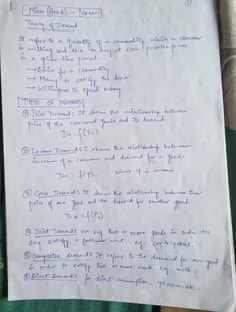 Theory of Demand
It refers to a Quantity of a commodity which a consumer
is willing and able to buy at each possible prices
in a given time period.
→ Desire for a commodity
→ Money to satisfy the desire
→ Willingness to spend money
TYPES OF DEMAND
① Price Demand: It shows the relationship between
price of the commod goods and its demand.
② Income Demand: It shows the relationship between
income of a consumer and demand for a good.
③ Cross Demand: It shows the relationship between the
price of one good and the demand for another good.
④ Joint Demand: two or more goods in order to
satisfy a particular want. eg. car & petrol.
⑤ Composite demand: it refers to the demand for one good
in order to satisfy two or more wants. eg. milk.
⑥ Direct Demand: for direct consumption,